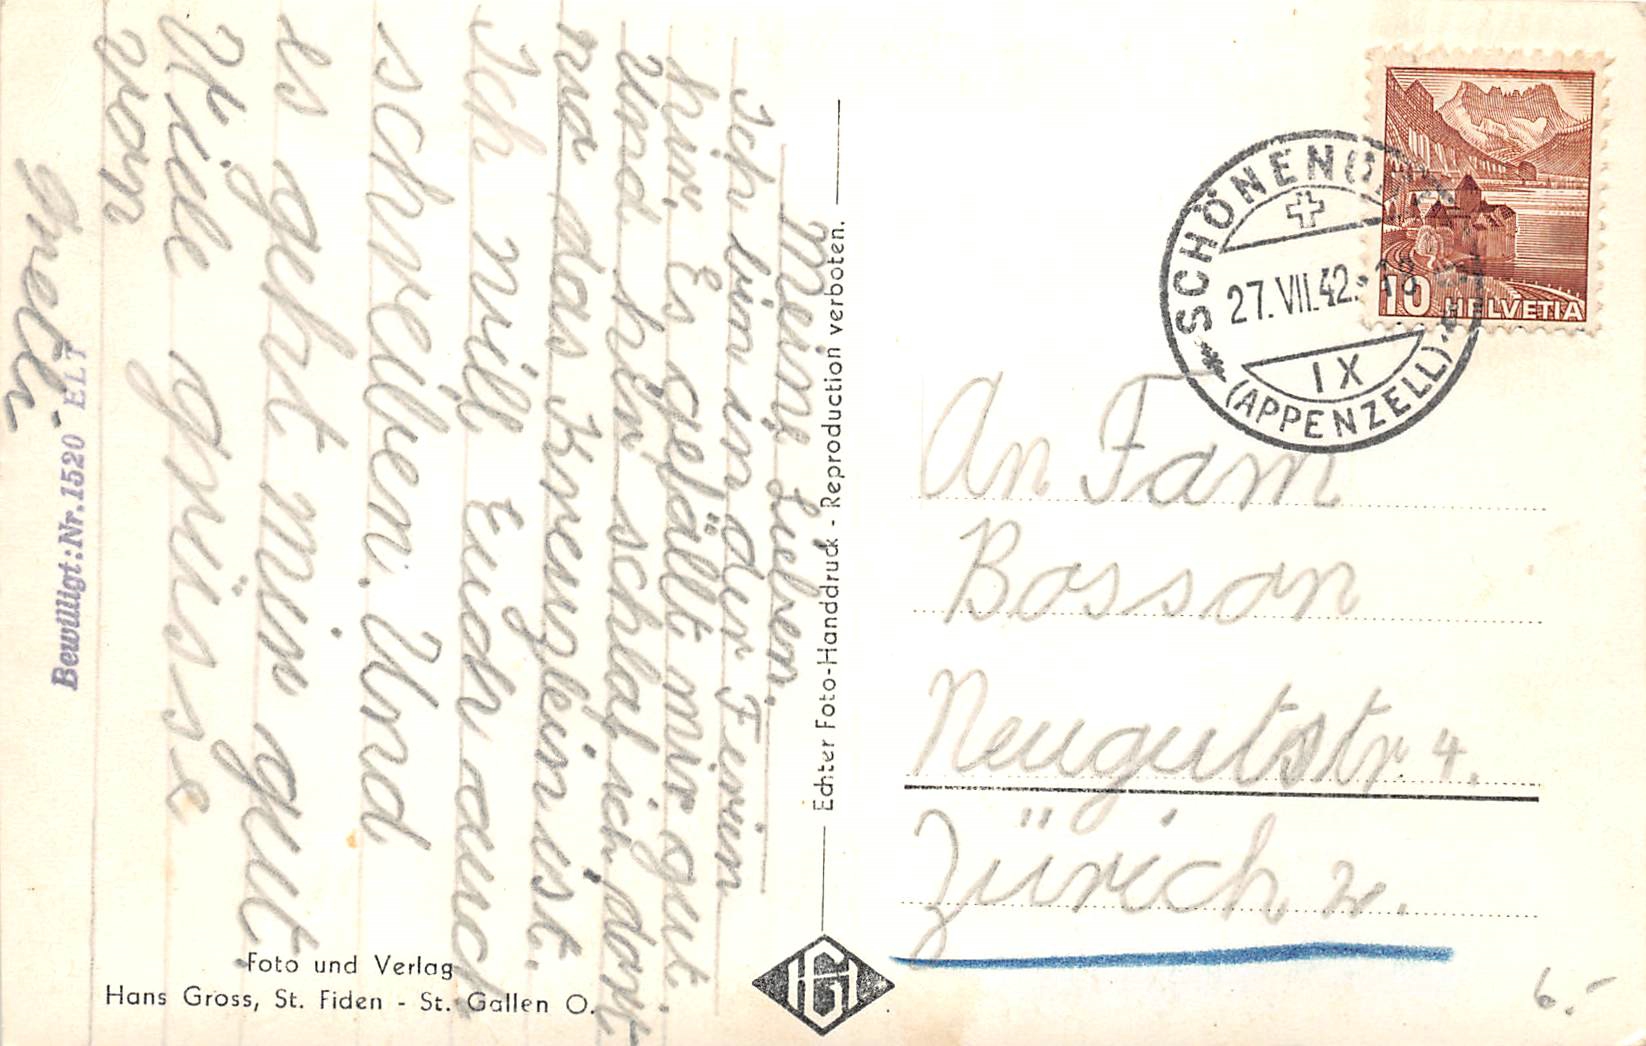 Meine Lieben.
Ich bin in der Ferien
hir. Es gefällt mir gut
und hir schlaf ich, dort
wo das Kreuzlein ist.
Ich will Euch auch
schreiben. Und
es geht mir gut.
Viele grüsse
von
Bewilligt: Nr. 1520 ELT
Foto und Verlag
Hans Gross, St. Fiden - St. Gallen O.
Echter Foto-Handdruck - Reproduction verboten.
HG
SCHÖNENGRUND
27.VII.42.-18
IX
(APPENZELL)
10 HELVETIA
An Fam
Bosson
Neugutstr 4.
Zürich 2.
6.-